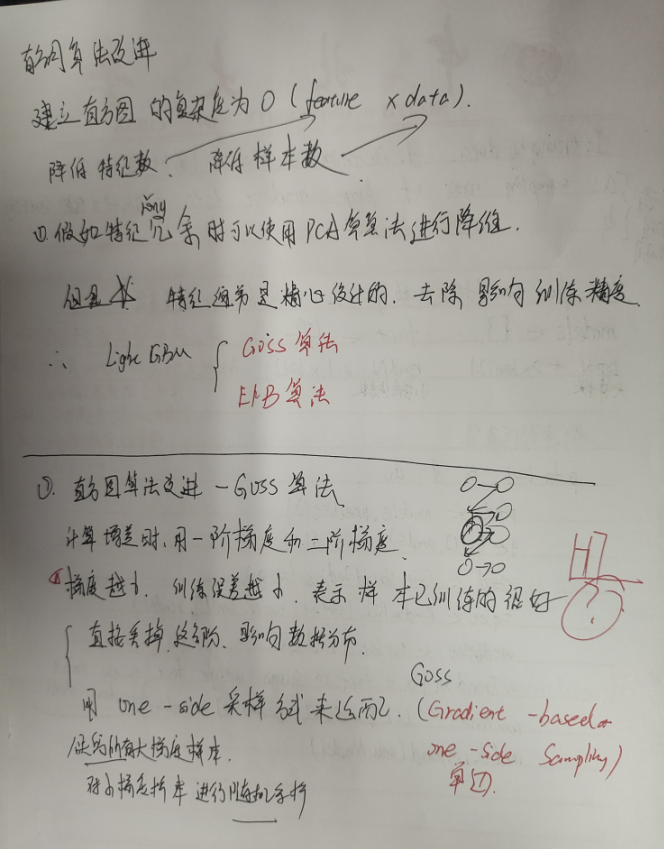 直方图算法改进
建立直方图的复杂度为O(feature × data).
降低特征数、降低样本数
①.假如特征冗余时可以使用PCA算算法进行降维.
rǒng
但是 特征通常是精心设计的.去除影响训练精度.
∴ LightGBM { Goss算法
EFB算法
①.直方图算法改进-Goss算法
计算增益时,用一阶梯度和二阶梯度.
梯度越小.训练误差越小.表示样本已训练的很好
直接丢掉这部分.影响数据分布.
Goss
用one-side采样方式来适配.(Gradient-based
one-side Sampling)
保留所有大梯度样本.
算法
对小梯度样本进行随机采样